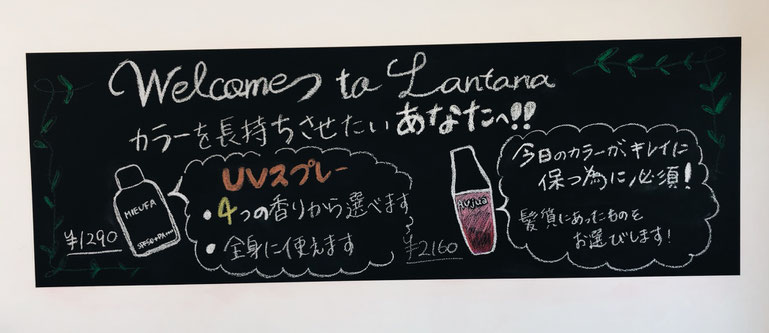 Welcome to Lantana
カラーを長持ちさせたいあなたへ!!
MIEUFA
SPF50+PA++++
¥1290
UVスプレー
• 4つの香りから選べます
• 全身に使えます
Aujua
¥2160
今日のカラーが、キレイに
保つ為に必須!
髪質にあったものを
お選びします!